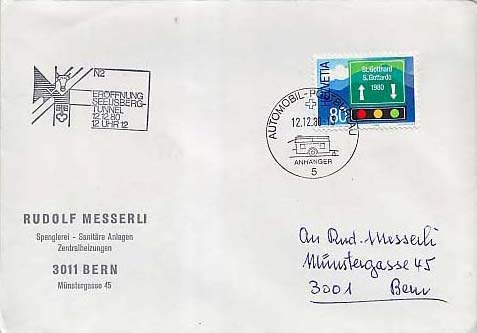 N2
ERÖFFNUNG
SEELISBERG-
TUNNEL
12.12.80
12 UHR 12
HELVETIA
80
St. Gotthard
S. Gottardo
1980
AUTOMOBIL-POSTBUREAU
12.12.80
ANHÄNGER
5
RUDOLF MESSERLI
Spenglerei - Sanitäre Anlagen
Zentralheizungen
3011 BERN
Münstergasse 45
An Rud. Messerli
Münstergasse 45
3001 Bern